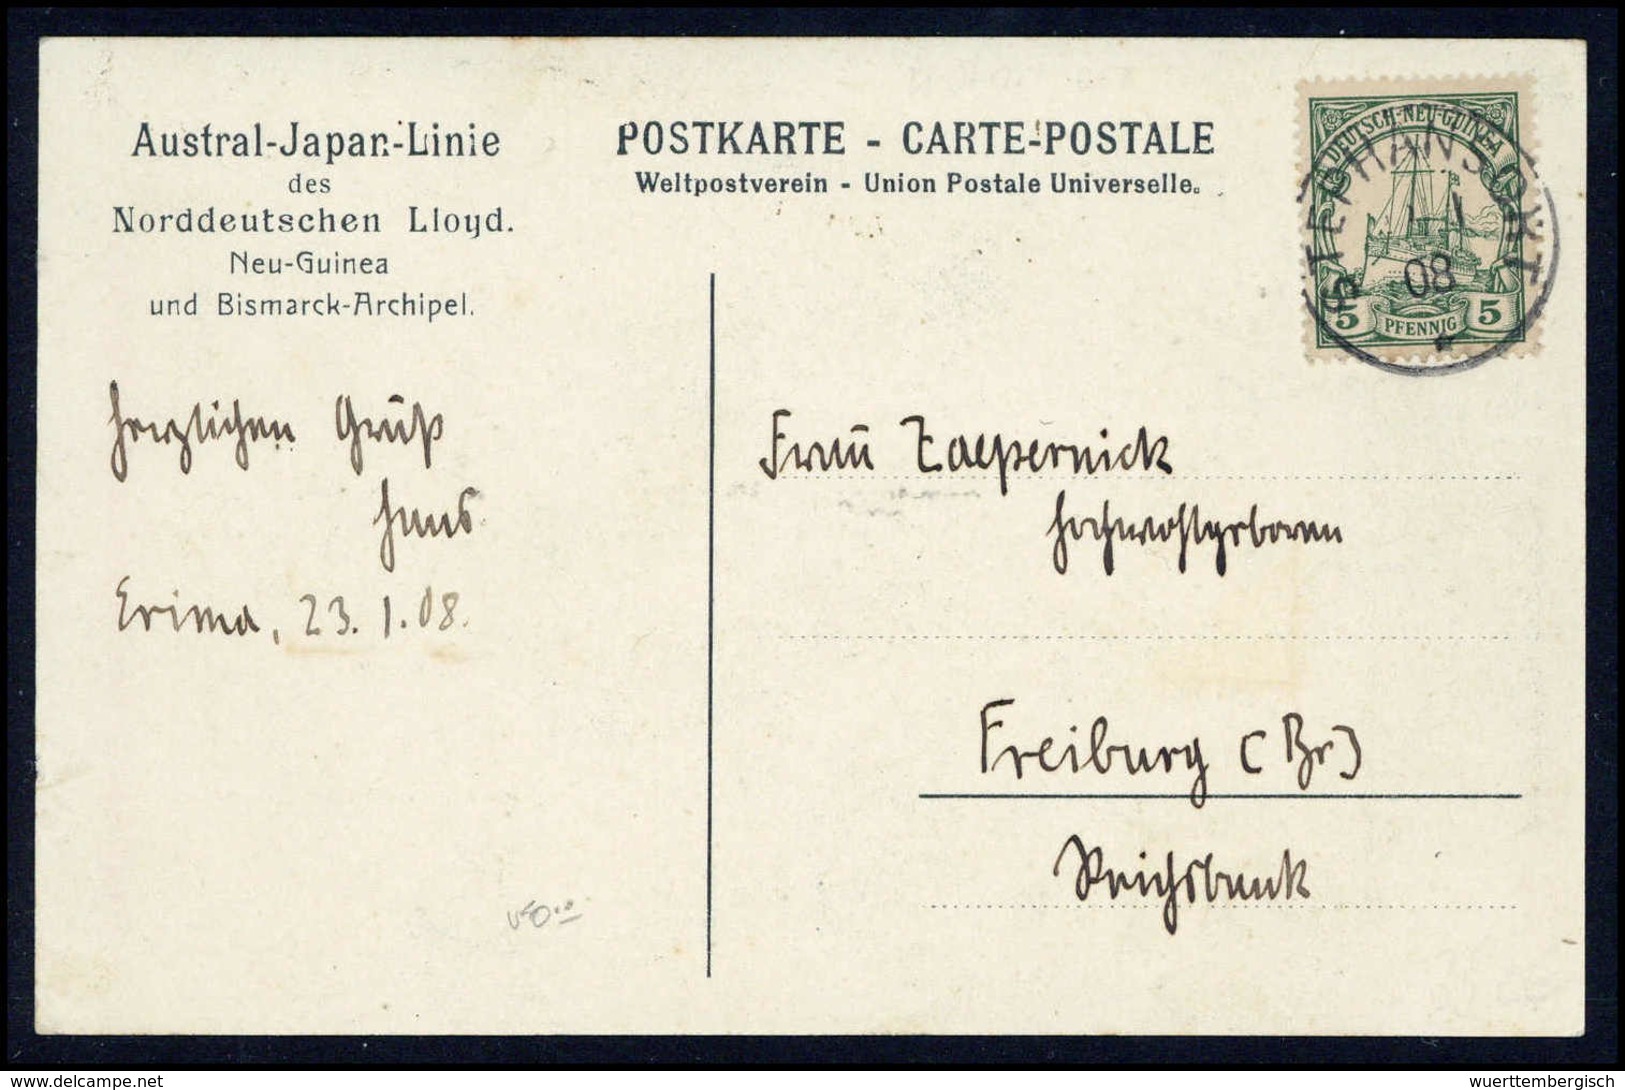 Austral-Japan-Linie
des
Norddeutschen Lloyd.
Neu-Guinea
und Bismarck-Archipel.
POSTKARTE - CARTE-POSTALE
Weltpostverein - Union Postale Universelle.
DEUTSCH-NEU-GUINEA
5 PFENNIG 5
STEPHANSORT
08
herzlichen Gruß
Hans
Erima, 23.1.08.
Frau Zaepernick
Hochwohlgeboren
Freiburg (Br)
Reichsbank
delcampe.net
wuerttembergisch